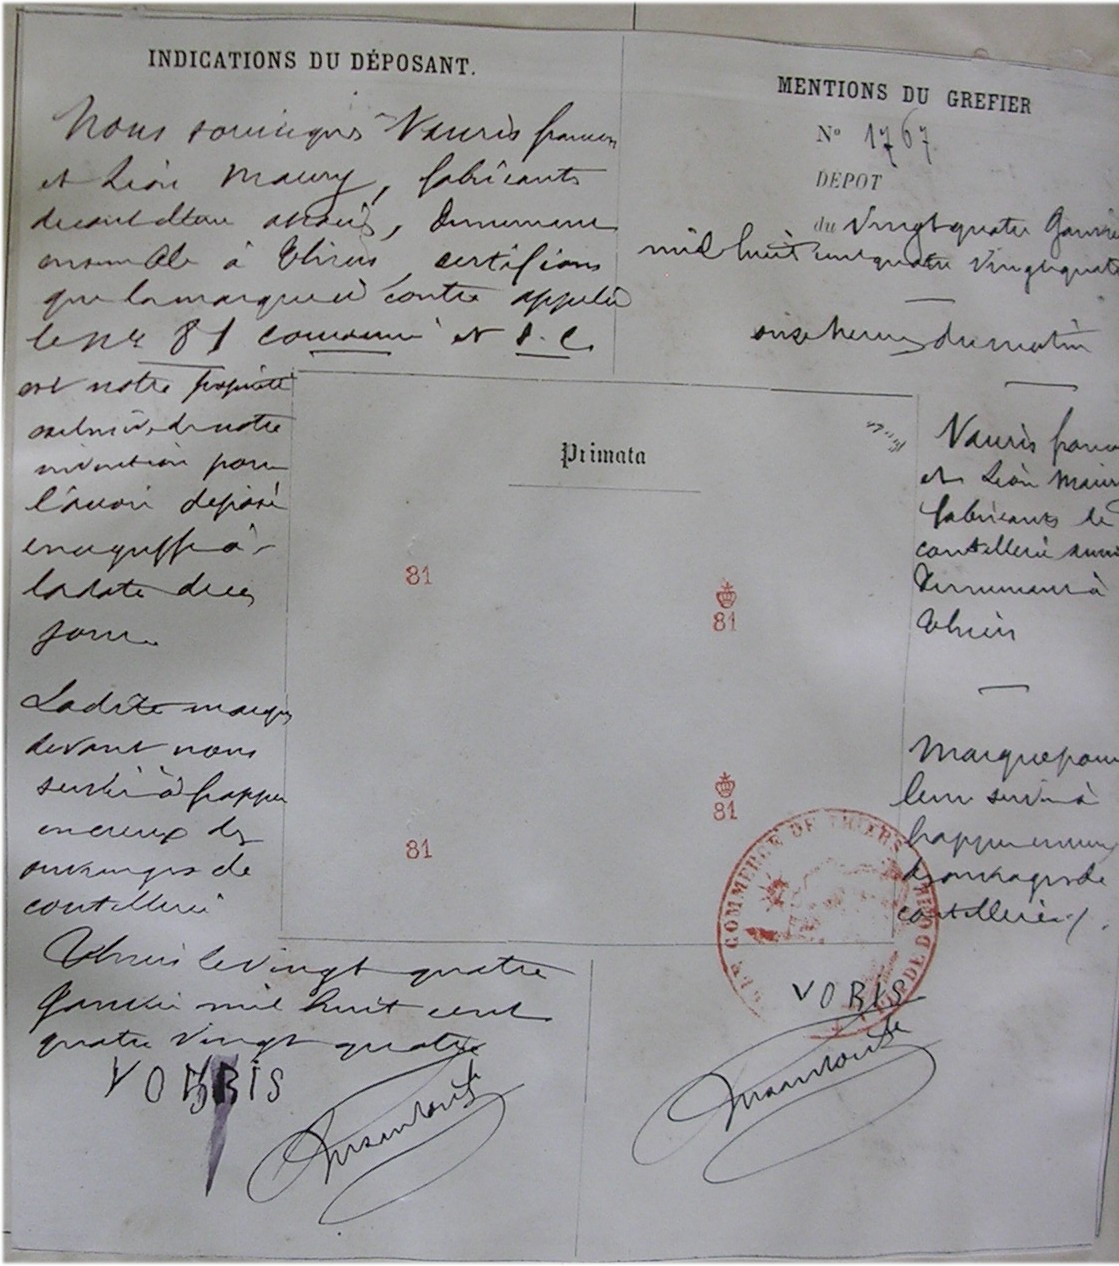 INDICATIONS DU DÉPOSANT.
Nous Vauris
et Léon Maury, fabricants
associés,
ensemble à Thiers, certifions
que la marque ci contre
le No 81 couronné et
est notre propriété
de notre
invention pour
l'avoir déposé
en ce greffe à
la date de ce
jour
Ladite marque
devant nous
servir à frapper
en creux des
ouvrages de
coutellerie
Thiers le vingt quatre
Janvier mil huit cent
quatre vingt quatre
VO RIS
MENTIONS DU GREFIER
No 1767
DÉPOT
du Vingt quatre Janvie
mil huit cent quatre vingt quat
onze heures du matin
Vauris
et Léon Maur
fabricants de
coutellerie
à
Thiers
Marque pour
leur servir à
frapper en creux
des ouvrages de
coutellerie
Primata
81
81
81
81
COMMERCE DE THIERS
VORIS